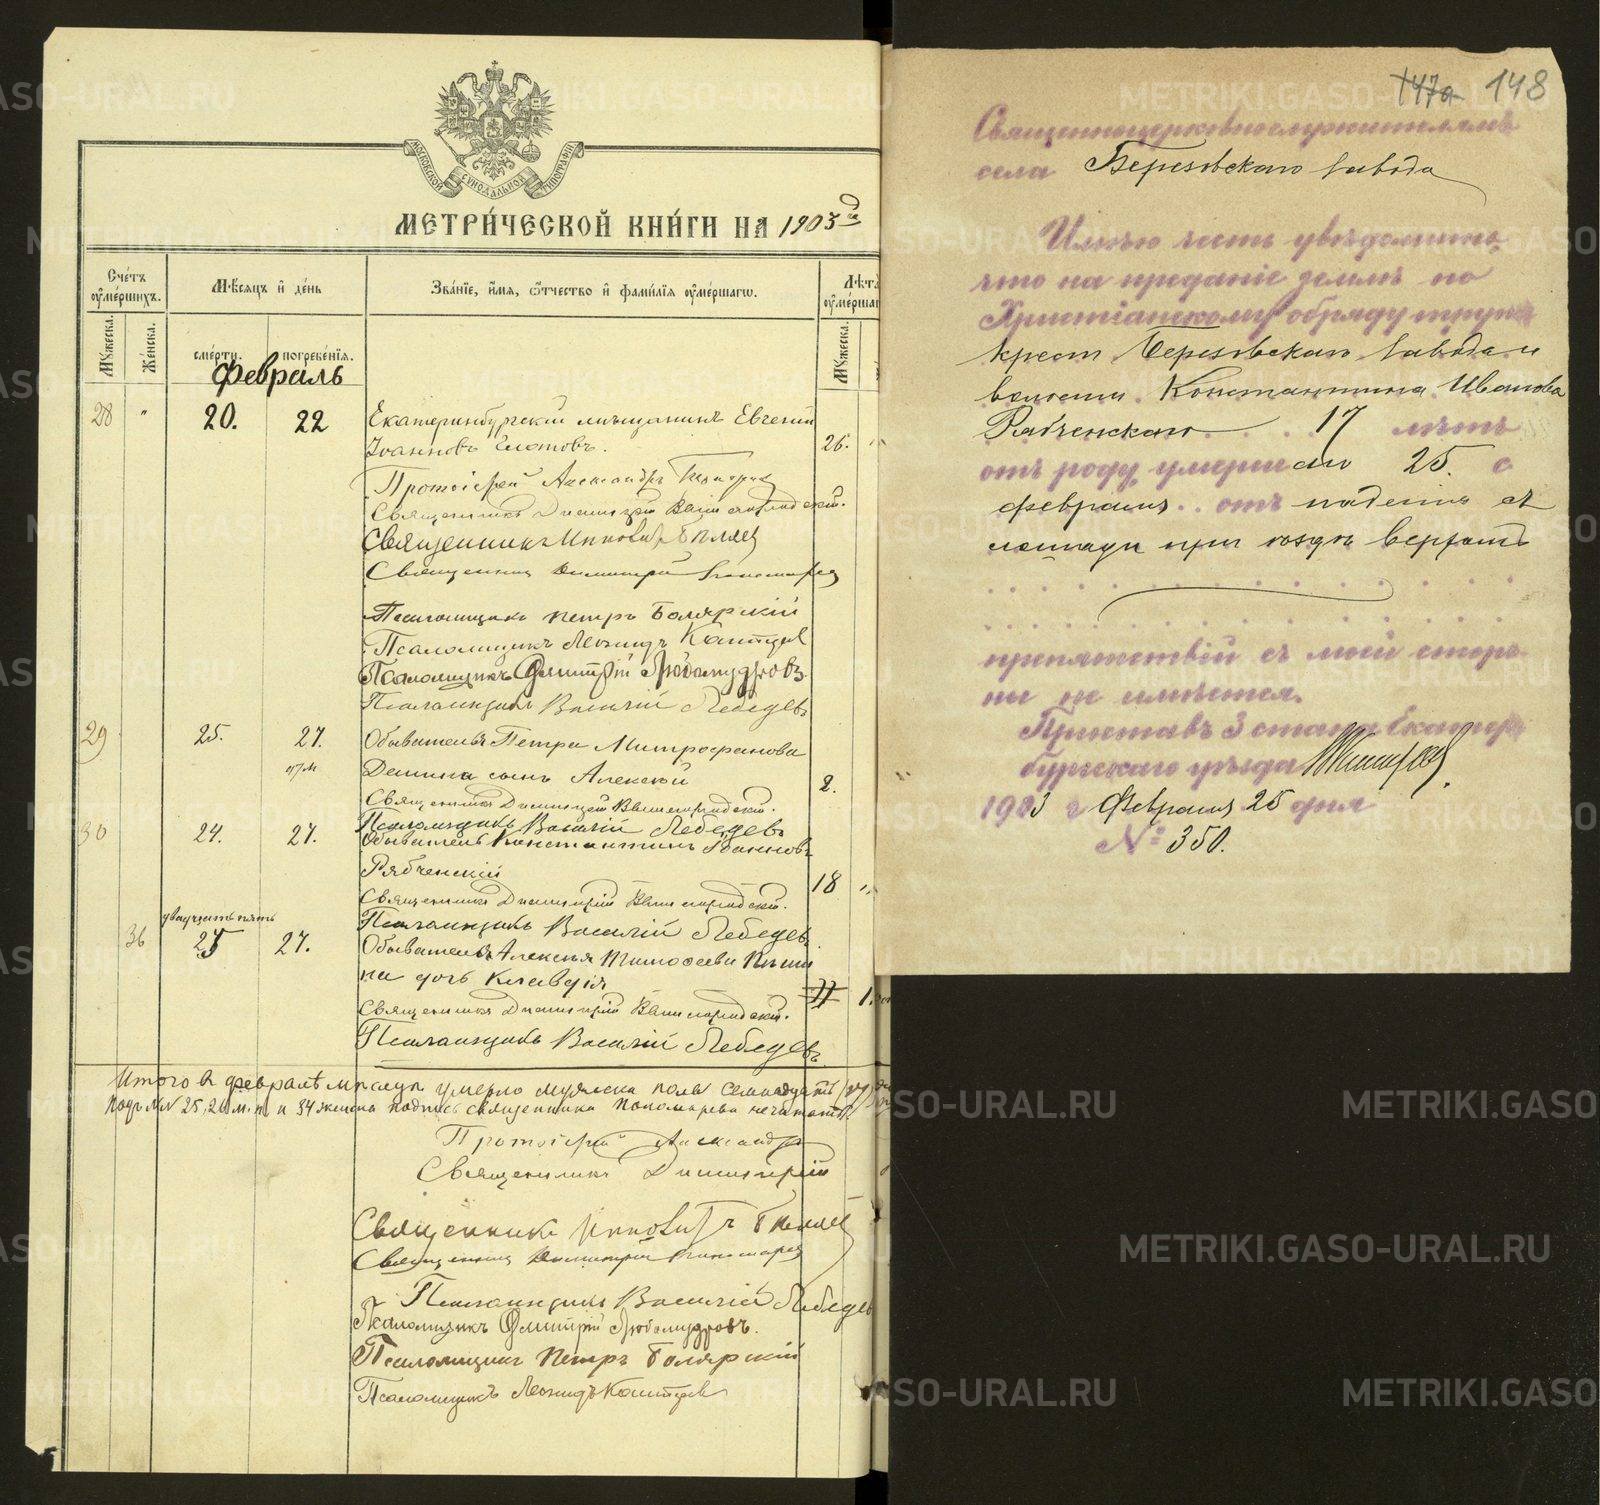 МЕТРИ́ЧЕСКОЙ КНИ́ГИ НА 1903 й
МОСКОВСКОЙ СѴНОДАЛЬНОЙ ТИПОГРАФІИ
Сче́тъ ѹ҆ме́ршихъ.
Мѣ́сяцъ и҆ де́нь
Зва́нїе, и҆́мя, ѻ҆́тчество и҆ фамі́лїя ѹ҆ме́ршагѡ.
Лѣта̀
ѹ҆ме́ршаг
Мꙋ́жеска.
Же́нска.
сме́рти.
погребе́нїя.
Мꙋ́жеска.
Февраль
28 " 20. 22 Екатеринбургскій мѣщанинъ Евгеній
Іоанновъ 26.
Протоіерей Александръ
Священникъ Димитрій
Священникъ Ипполитъ Бѣляев
Священникъ Димитрій Пономарев
Псаломщикъ Петръ Боярскій
Псаломщикъ Леонидъ
Псаломщикъ Дмитрій Любомудровъ.
Псаломщикъ Василій Лебедевъ
29 25. 27. Обывателя Петра Митрофанова
Демина сынъ Алексѣй 2.
Священникъ Димитрій
Псаломщикъ Василій Лебедевъ
30 24. 27. Обыватель Константинъ Іоанновъ
Рябченскій 18 "
Священникъ Димитрій
двадцать пять
Псаломщикъ Василій Лебедевъ
36 25 27. Обывателя Алексѣя Тимофеева
на дочь Клавдія 1.
Священникъ Димитрій
Псаломщикъ Василій Лебедевъ
Итого въ февралѣ мѣсяцѣ умерло мужеска пола семнадцать (17)
подъ №№ 25, 26 м. п. и 34 женска подпись священника Пономарева не читать.
Протоіерей Александръ
Священникъ Димитрій
Священникъ Ипполитъ Бѣляев
Священникъ Димитрій Пономарев
Псаломщикъ Василій Лебедев
Псаломщикъ Дмитрій Любомудровъ.
Псаломщикъ Петръ Боярскій
Псаломщикъ Леонидъ
147а 148
Священноцерковнослужителямъ
села Березовскаго завода
Имѣю честь увѣдомить,
что на преданіе землѣ по
Христіанскому обряду трупа
крест. Березовскаго завода и
волости Константина Иванова
Рабченскаго 17 лѣтъ
отъ роду, умершаго 25 с
февраля отъ паденія съ
лошади при ѣздѣ верхомъ
препятствій съ моей сторо-
ны не имѣется.
Приставъ 3 стана Екатерин
бургскаго уѣзда
1903 г Февраля 25 дня
№ 350.
METRIKI.GASO-URAL.RU